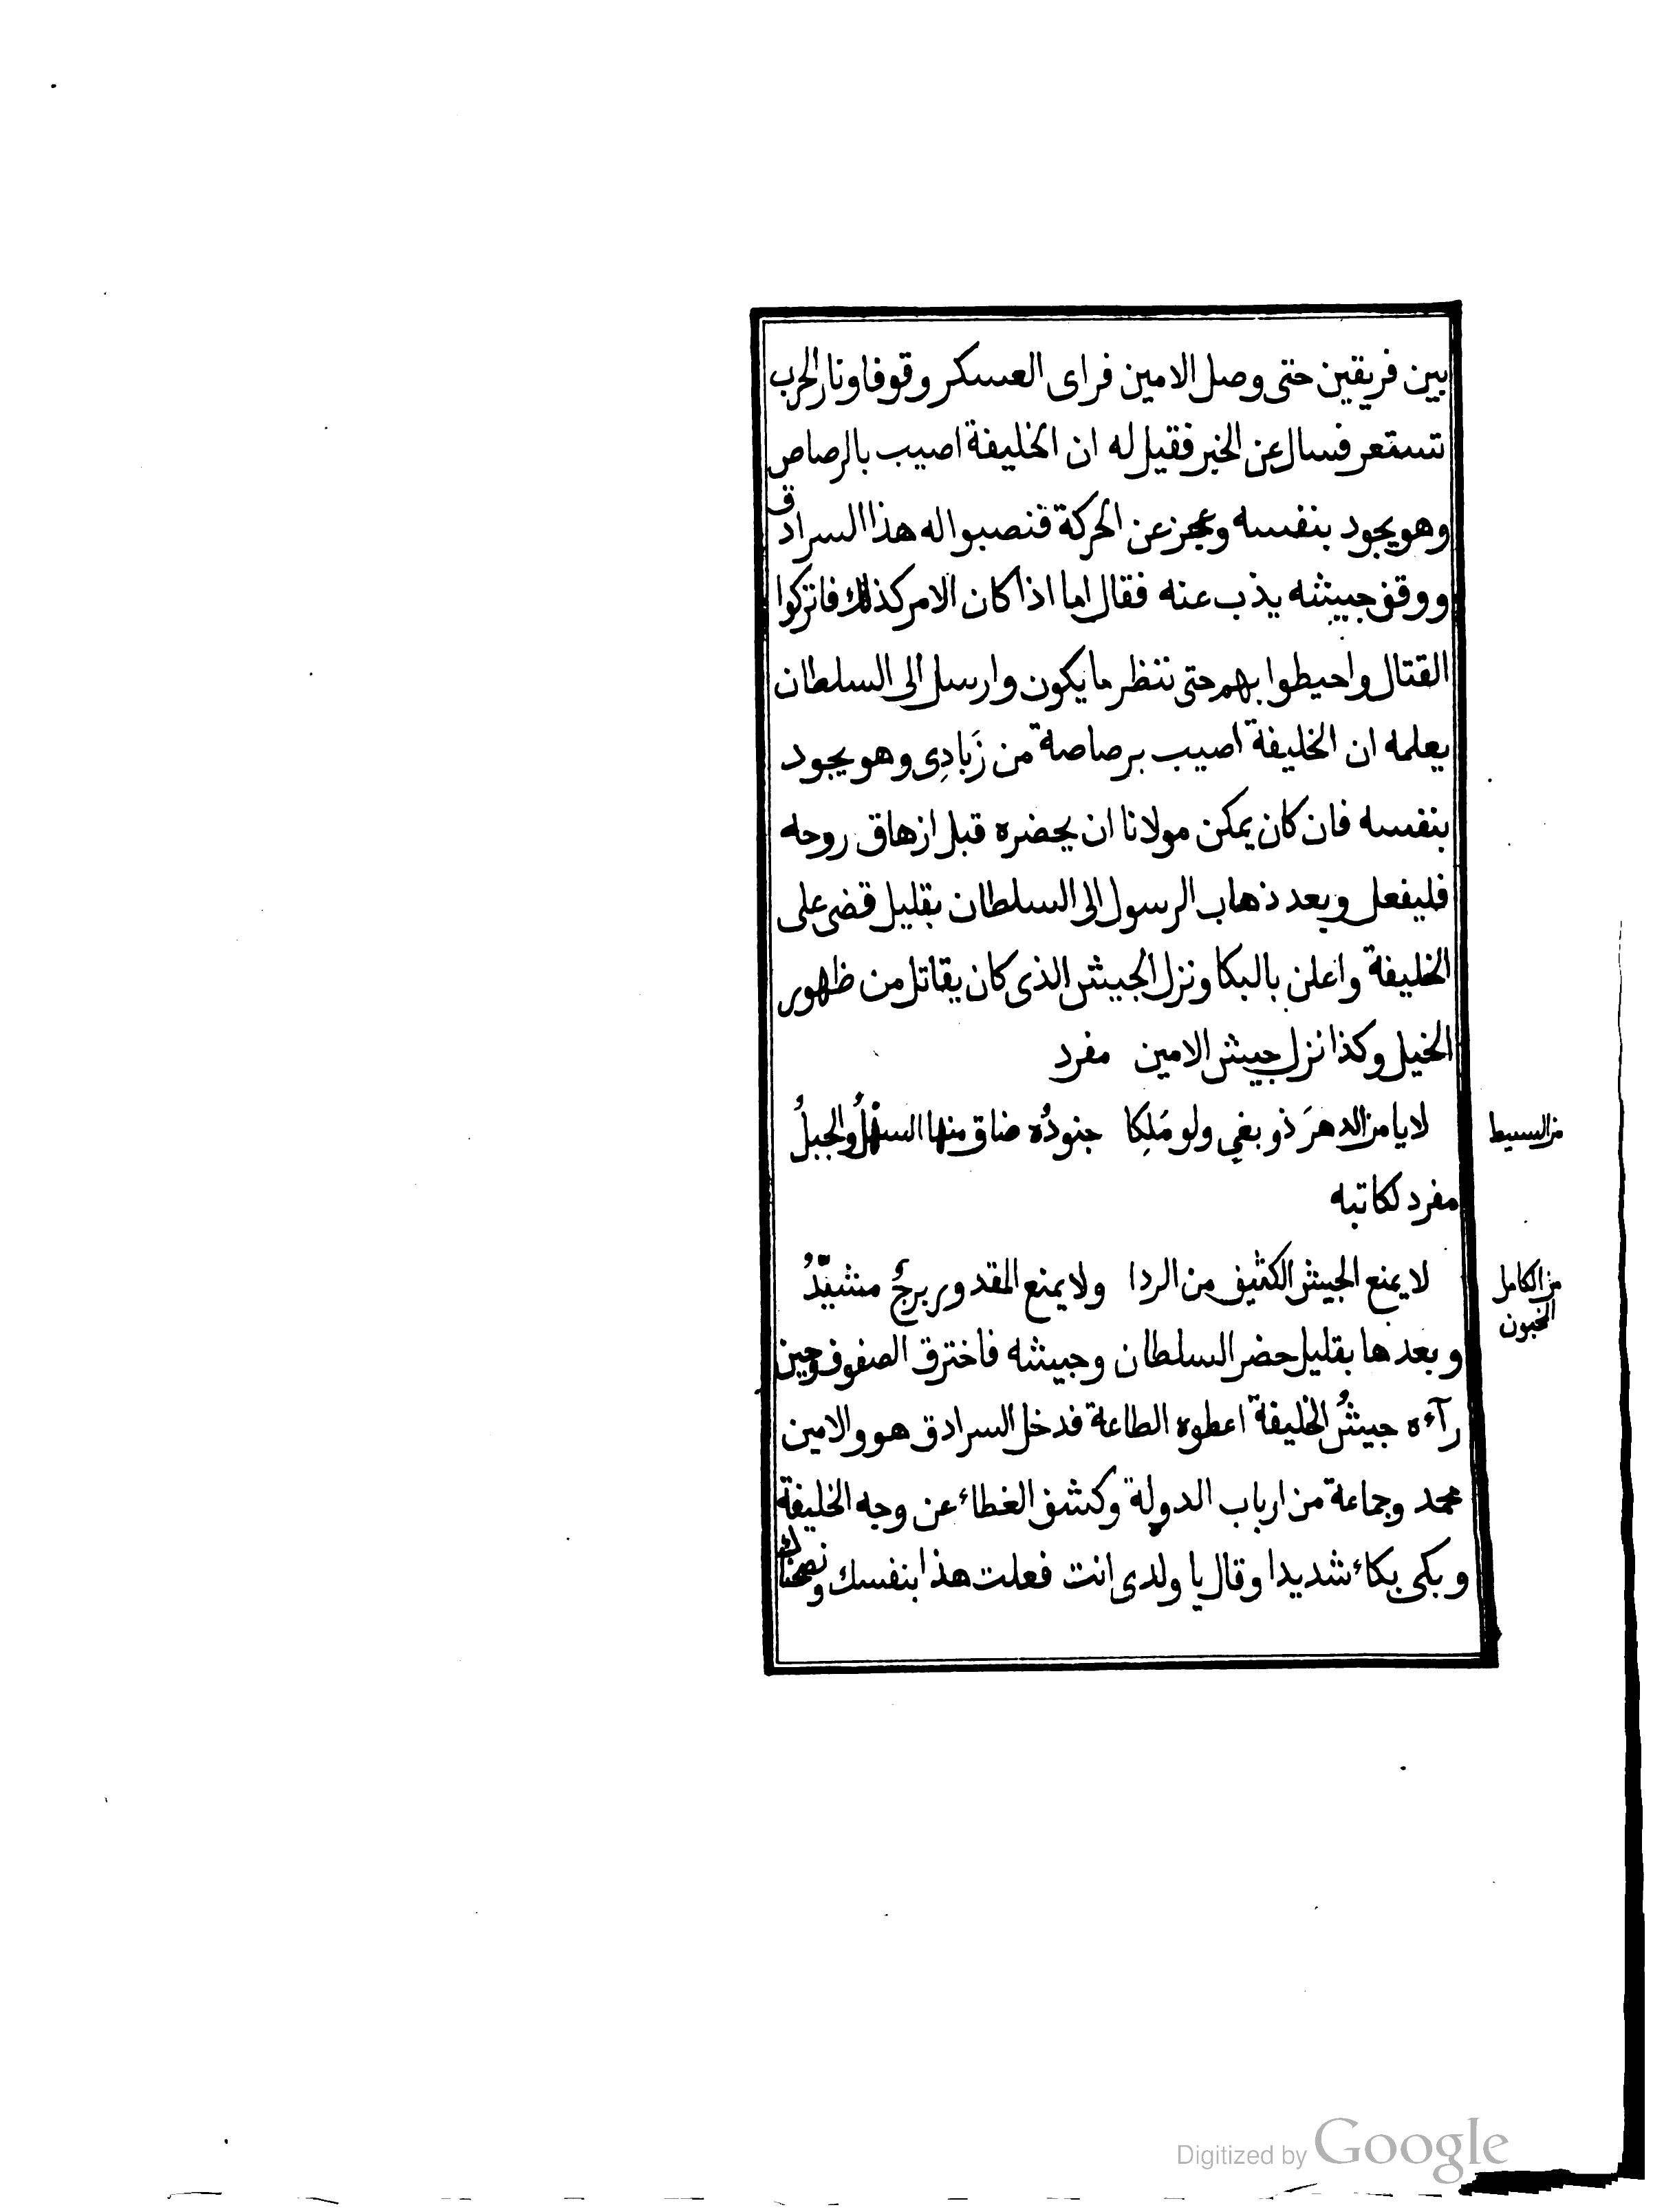 بين فريقين حتى وصل الامين فراى العسكر وقوفا ونار الحرب
تستعر فسال عن الخبر فقيل له ان الخليفة اصيب بالرصاص
وهو يجود بنفسه وعجز عن الحركة فنصبوا له هذا السرادق
ووقف جيشه يذب عنه فقال اما اذا كان الامر كذلك فاتركوا
القتال واحيطوا بهم حتى ننظر ما يكون وارسل الى السلطان
يعلمه ان الخليفة اصيب برصاصة من زَبادِى وهو يجود
بنفسه فان كان يمكن مولانا ان يحضره قبل ازهاق روحه
فليفعل وبعد ذهاب الرسول الى السلطان بقليل قضى على
الخليفة واعلن بالبكا ونزل الجيش الذى كان يقاتل من ظهور
الخيل وكذا نزل جيش الامين مفرد
لا يامن الدهرَ ذو بغي ولو مَلِكا جنودُه ضاق منها السهلُ والجبلُ
من البسيط
مفرد لكاتبه
لا يمنع الجيش الكثيف من الردا ولا يمنع المقدور برجٌ مشيّدُ
من الكامل
المخبون
وبعدها بقليل حضر السلطان وجيشه فاخترق الصفوف وحين
رآءه جيشُ الخليفة اعطوه الطاعة فدخل السرادق هو والامين
محمد وجماعة من ارباب الدولة وكشف الغطاء عن وجه الخليفة
وبكى بكاء شديدا وقال يا ولدى انت فعلت هذا بنفسك ونصحناك
Digitized by Google